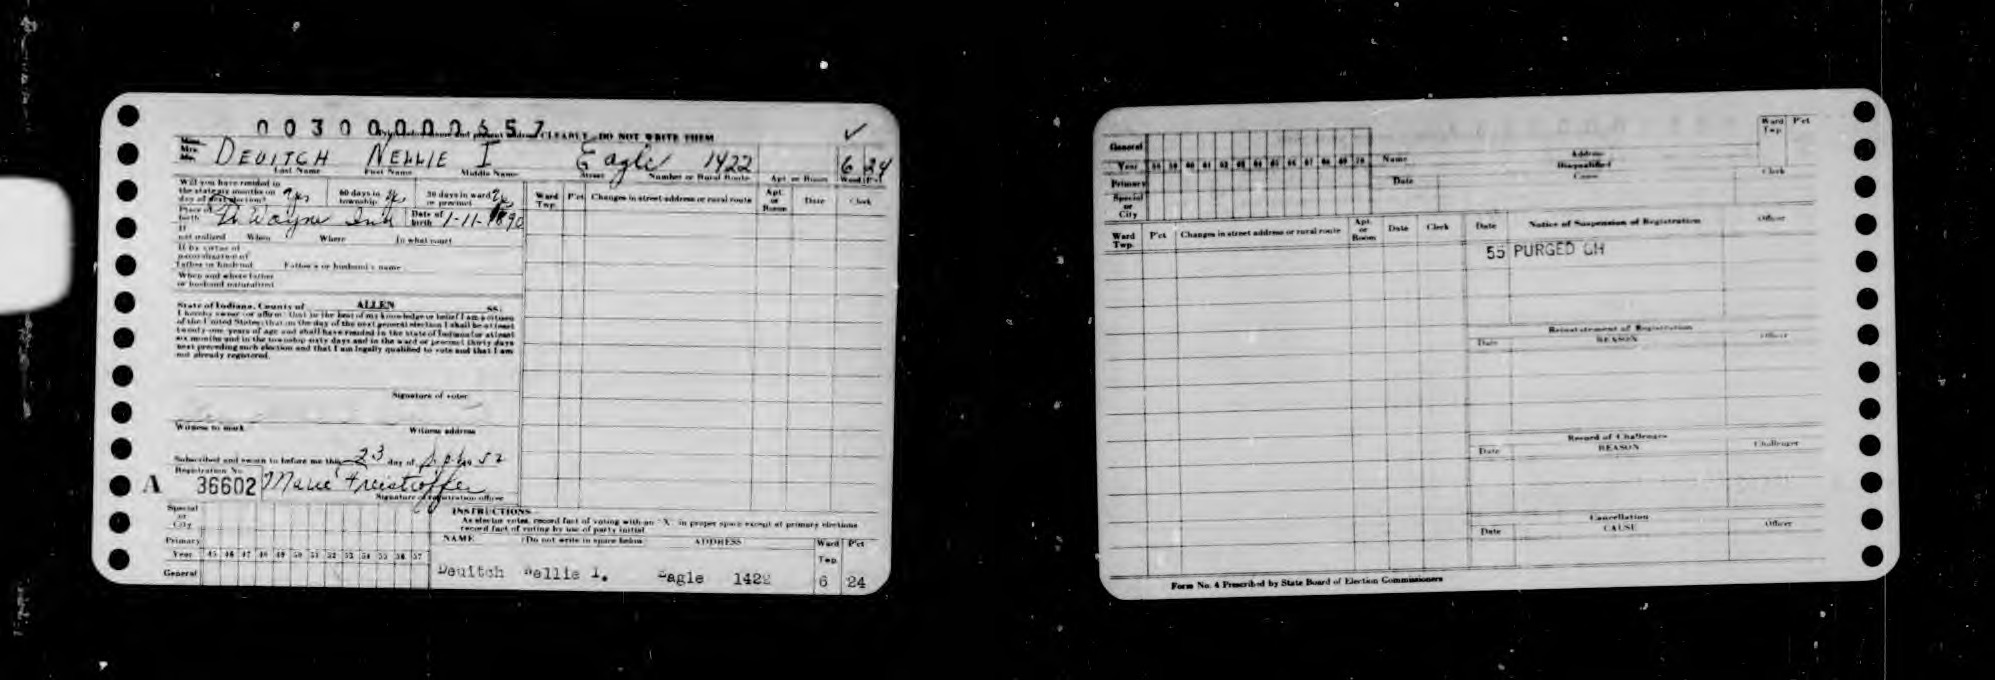 0030000000657
CLEARLY — DO NOT WRITE THEM
Miss Mrs. Mr. DEUITCH NELLIE I Eagle 1422 6 24
Last Name First Name Middle Name Street Number or Rural Route Apt or Room Ward P'ct
Will you have resided in the state six months on day of next election? Yes 60 days in township Yes 30 days in ward or precinct Yes
Place of birth Ft Wayne Ind Date of birth 1-11-1890
If naturalized When Where In what court
If by virtue of naturalization of Father or husband Father's or husband's name
When and where father or husband naturalized
Ward Twp. P'ct Changes in street address or rural route Apt. or Room Date Clerk
State of Indiana, County of ALLEN SS:
I hereby swear (or affirm) that to the best of my knowledge or belief I am a citizen
of the United States; that on the day of the next general election I shall be at least
twenty-one years of age and shall have resided in the state of Indiana for at least
six months and in the township sixty days and in the ward or precinct thirty days
next preceding such election and that I am legally qualified to vote and that I am
not already registered.
Signature of voter
Witness to mark Witness address
Subscribed and sworn to before me this 23 day of 52
Registration No.
A 36602 Marie Freistroffer
Signature of registration officer
INSTRUCTIONS
As elector votes, record fact of voting with an "X" in proper space except at primary elections
record fact of voting by use of party initial
Special or City
Primary
Year 45 46 47 48 49 50 51 52 53 54 55 56 57
General
NAME (Do not write in space below) ADDRESS Ward Twp. P'ct
Deuitch Nellie I. Eagle 1422 6 24
General
Year 58 59 60 61 62 63 64 65 66 67 68 69 70
Primary
Special or City
Name Address
Disqualified
Date Cause Clerk
Ward Twp. P'ct
Ward Twp. P'ct Changes in street address or rural route Apt. or Room Date Clerk
Date Notice of Suspension of Registration Officer
55 PURGED GH
Reinstatement of Registration
Date REASON Officer
Record of Challenges
Date REASON Challenger
Cancellation
Date CAUSE Officer
Form No. 4 Prescribed by State Board of Election Commissioners